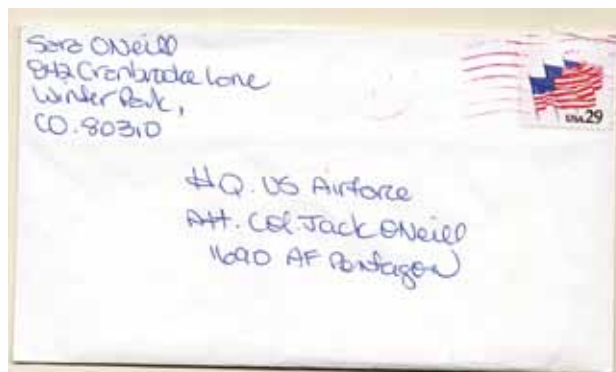 Sara ONeill
842 Cranbrooke Lane
Winter Park,
CO. 80310
USA 29
HQ. US Airforce
Att. Col. Jack ONeill
1690 AF Pentagon